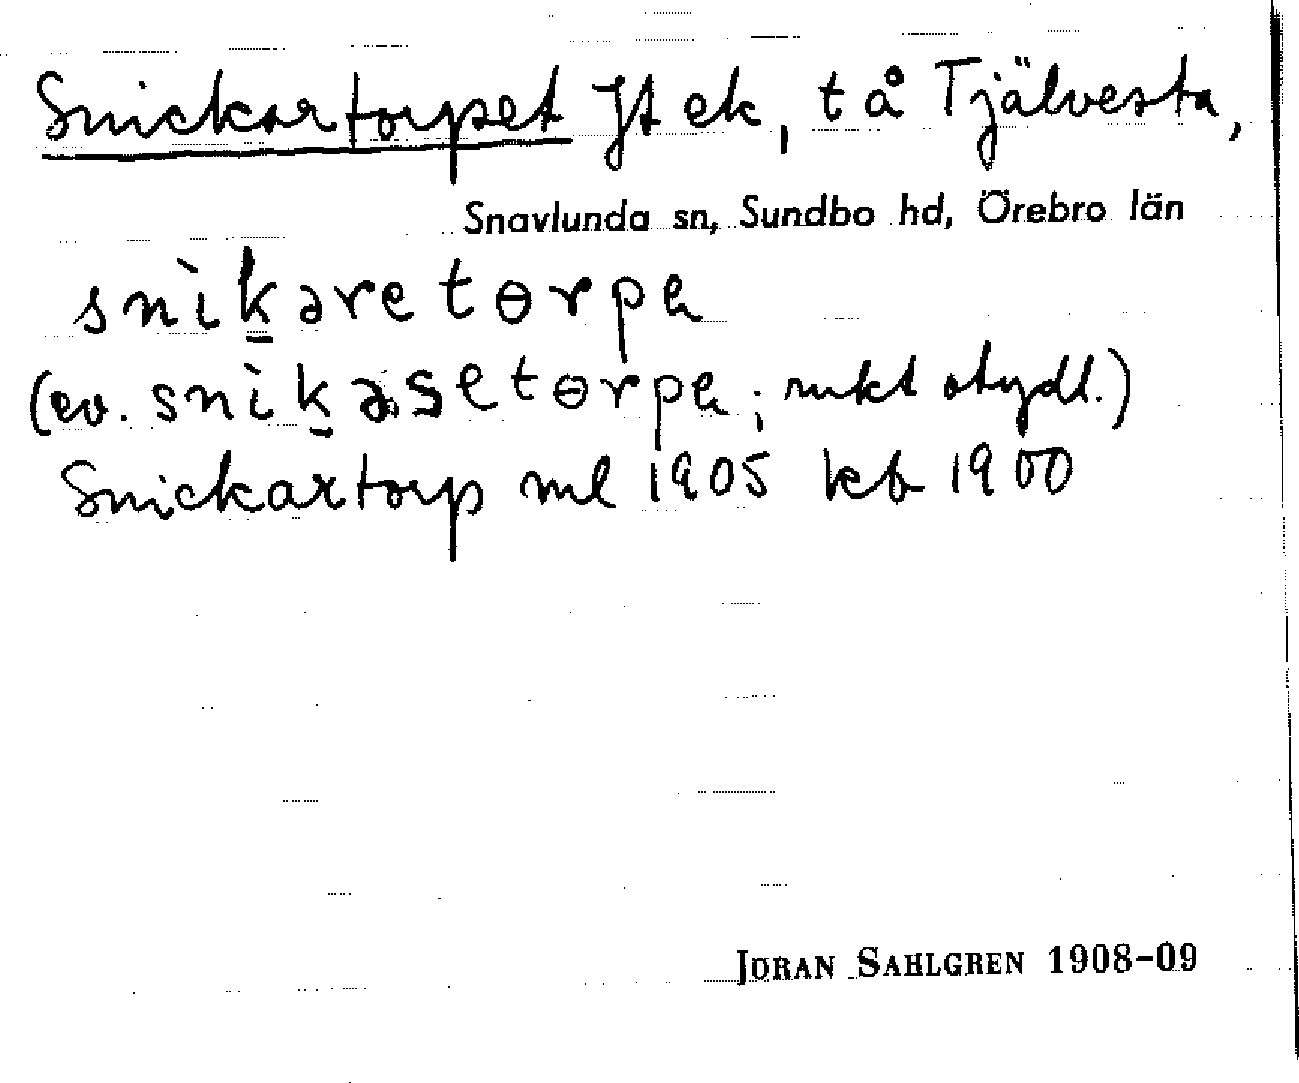 Snickartorpet Jt ek, t å Tjälvesta,
Snavlunda sn, Sundbo hd, Örebro län
snìk̲aretɵrpa
(ev. snìk̲asetɵrpa; otydl.)
Snickartorp ml 1905 kb 1900
JORAN SAHLGREN 1908-09